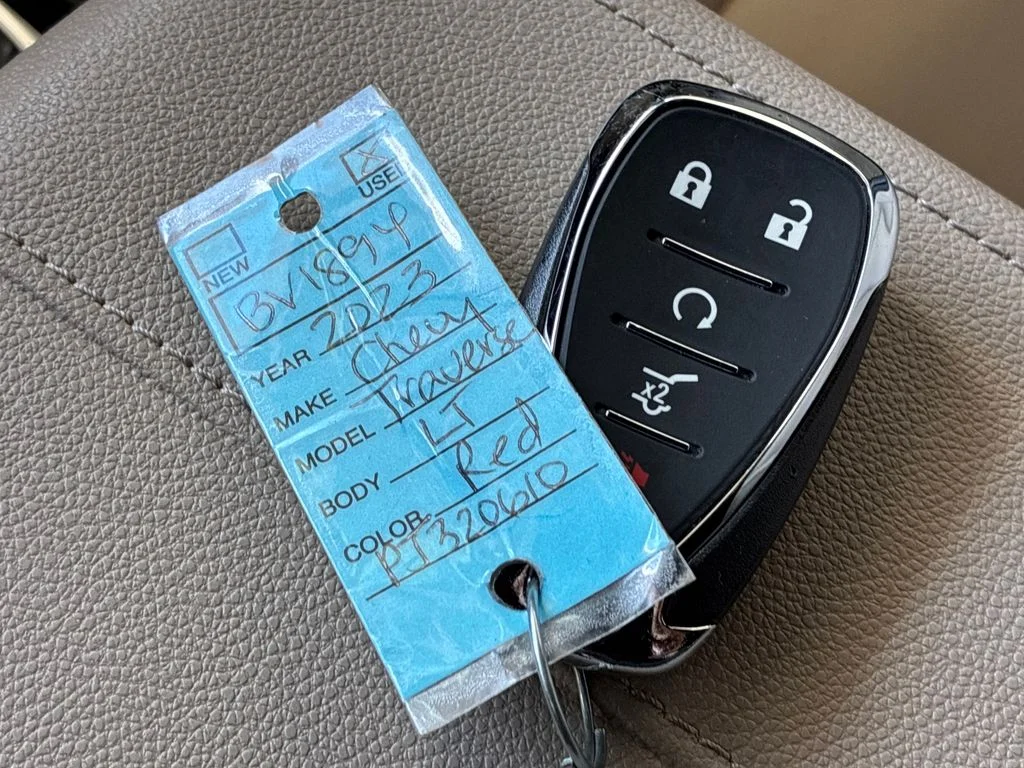 X
USED
NEW
BV1894
YEAR 2023
MAKE Chevy
MODEL Traverse
BODY LT
COLOR Red
PJ320610
x2